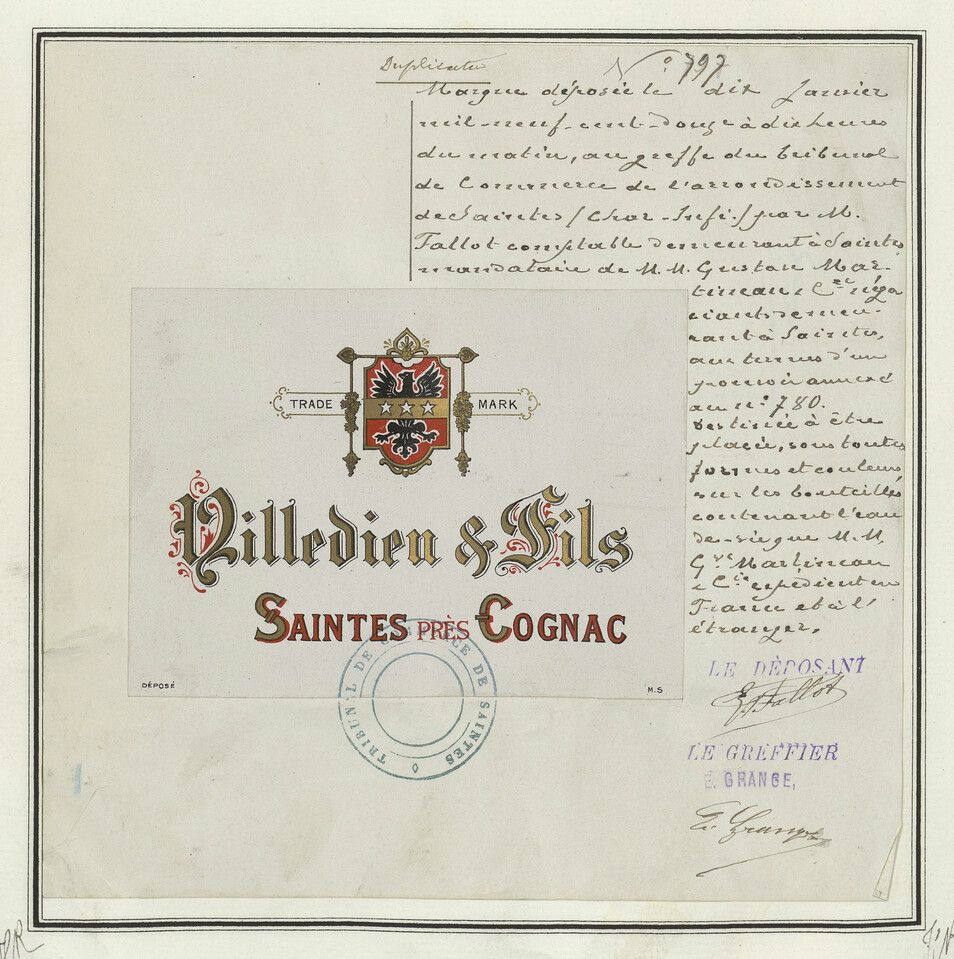 Duplicata
N° 797
Marque déposée le dix Janvier
mil-neuf-cent-douze à dix heures
du matin, au greffe du tribunal
de Commerce de l'arrondissement
de Saintes / Char-Infé. / par M.
Fallot comptable demeurant à Saintes
mandataire de M.M. Gustave Mar-
tineau & Cie négo
ciants demeu-
rant à Saintes,
aux termes d'un
pouvoir annexé
au n° 780.
Destinée à être
placée, sous toutes
formes et couleurs
sur les bouteilles
contenant l'eau
de-vie que M.M.
Gve Martineau
& Cie expédient en
France et à l'
étranger.
TRADE MARK
Villedieu & Fils
SAINTES PRÈS COGNAC
DÉPOSÉ
M.S
TRIBUNAL DE COMMERCE DE SAINTES
LE DÉPOSANT
Fallot
LE GREFFIER
E. GRANGE,
E. Grange